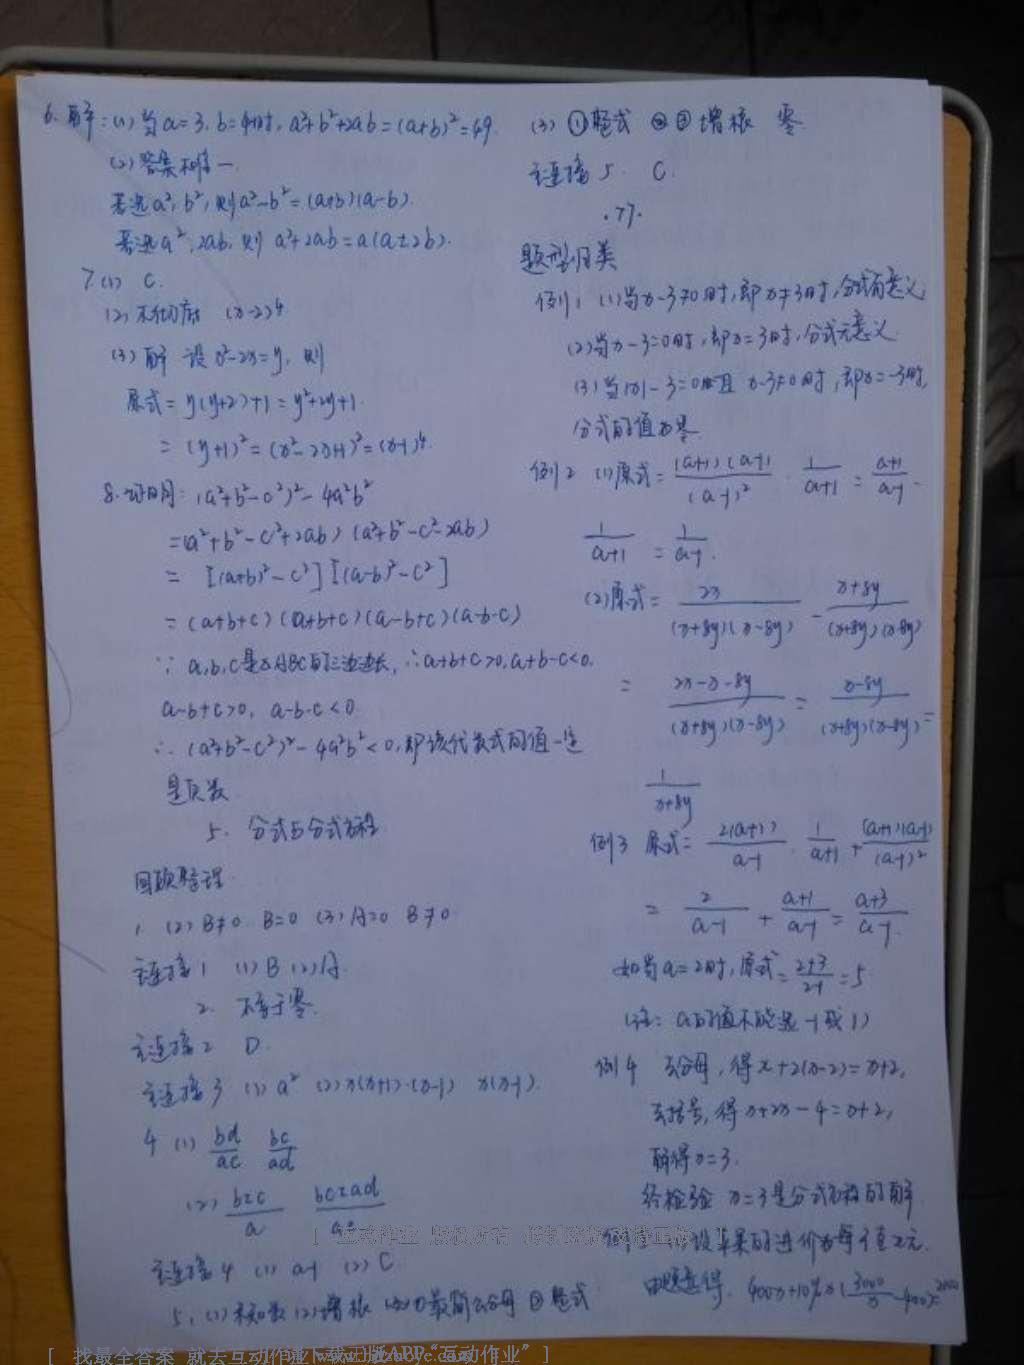 6. 解:(1)当a=3,b=4时,a²+b²+2ab=(a+b)²=49
(2)答案不唯一
若选a²,b²,则a²-b²=(a+b)(a-b).
若选a²,2ab,则 a²±2ab=a(a±2b).
7.(1) C.
(2) 不彻底 (x-2)⁴
(3) 解 设x²-2x=y,则
原式=y(y+2)+1=y²+2y+1.
=(y+1)²=(x²-2x+1)²=(x-1)⁴.
8.证明:(a²+b²-c²)²-4a²b²
=(a²+b²-c²+2ab)(a²+b²-c²-2ab)
=[(a+b)²-c²][(a-b)²-c²]
=(a+b+c)(a+b+c)(a-b+c)(a-b-c)
∵ a,b,c是△ABC的三边边长,∴a+b+c>0,a+b-c<0.
a-b+c>0, a-b-c<0
∴ (a²+b²-c²)²-4a²b²<0,即该代数式的值一定
是负数
5. 分式与分式方程
回顾整理
1. (2) B≠0 B=0 (3) A=0 B≠0
主连接1 (1) B (2) A.
2. 不等于零.
主连接2 D.
主连接3 (1) a² (2) x(x+1)·(x-1) x(x-1).
4 (1) bd/ac bc/ad
(2) b±c/a bc±ad/ac
主连接4 (1) a-1 (2) C
5. (1)未知数 (2)增根 (3)①最简公分母 ②整式
(3) ①整式 ②③增根 零.
主连接5. C.
.77.
题型归类
例1 (1)当x-3≠0时,即x≠3时,分式有意义
(2)当x-3=0时,即x=3时,分式无意义.
(3)当|x|-3=0且x-3≠0时,即x=-3时,
分式的值为零
例2 (1)原式=(a+1)(a-1)/(a-1)² · 1/a+1 = a+1/a-1 ·
1/a+1 = 1/a-1.
(2)原式= 2x/(x+8y)(x-8y) - x+8y/(x+8y)(x-8y)
= 2x-x-8y/(x+8y)(x-8y) = x-8y/(x+8y)(x-8y) =
1/x+8y
例3 原式= 2(a+1)/a-1 · 1/a+1 + (a+1)(a-1)/(a-1)²
= 2/a-1 + a+1/a-1 = a+3/a-1.
如当a=2时,原式=2+3/2-1=5
(注:a的值不能选-1或1)
例4 去分母,得x+2(x-2)=x+2,
去括号,得x+2x-4=x+2,
解得x=3.
经检验 x=3是分式方程的解
设苹果的进价为每千克x元.
由题意得,400x+10%x(3000/x-400)=
[ 找最全答案 就去互动作业 下载 APP“互动作业” ]